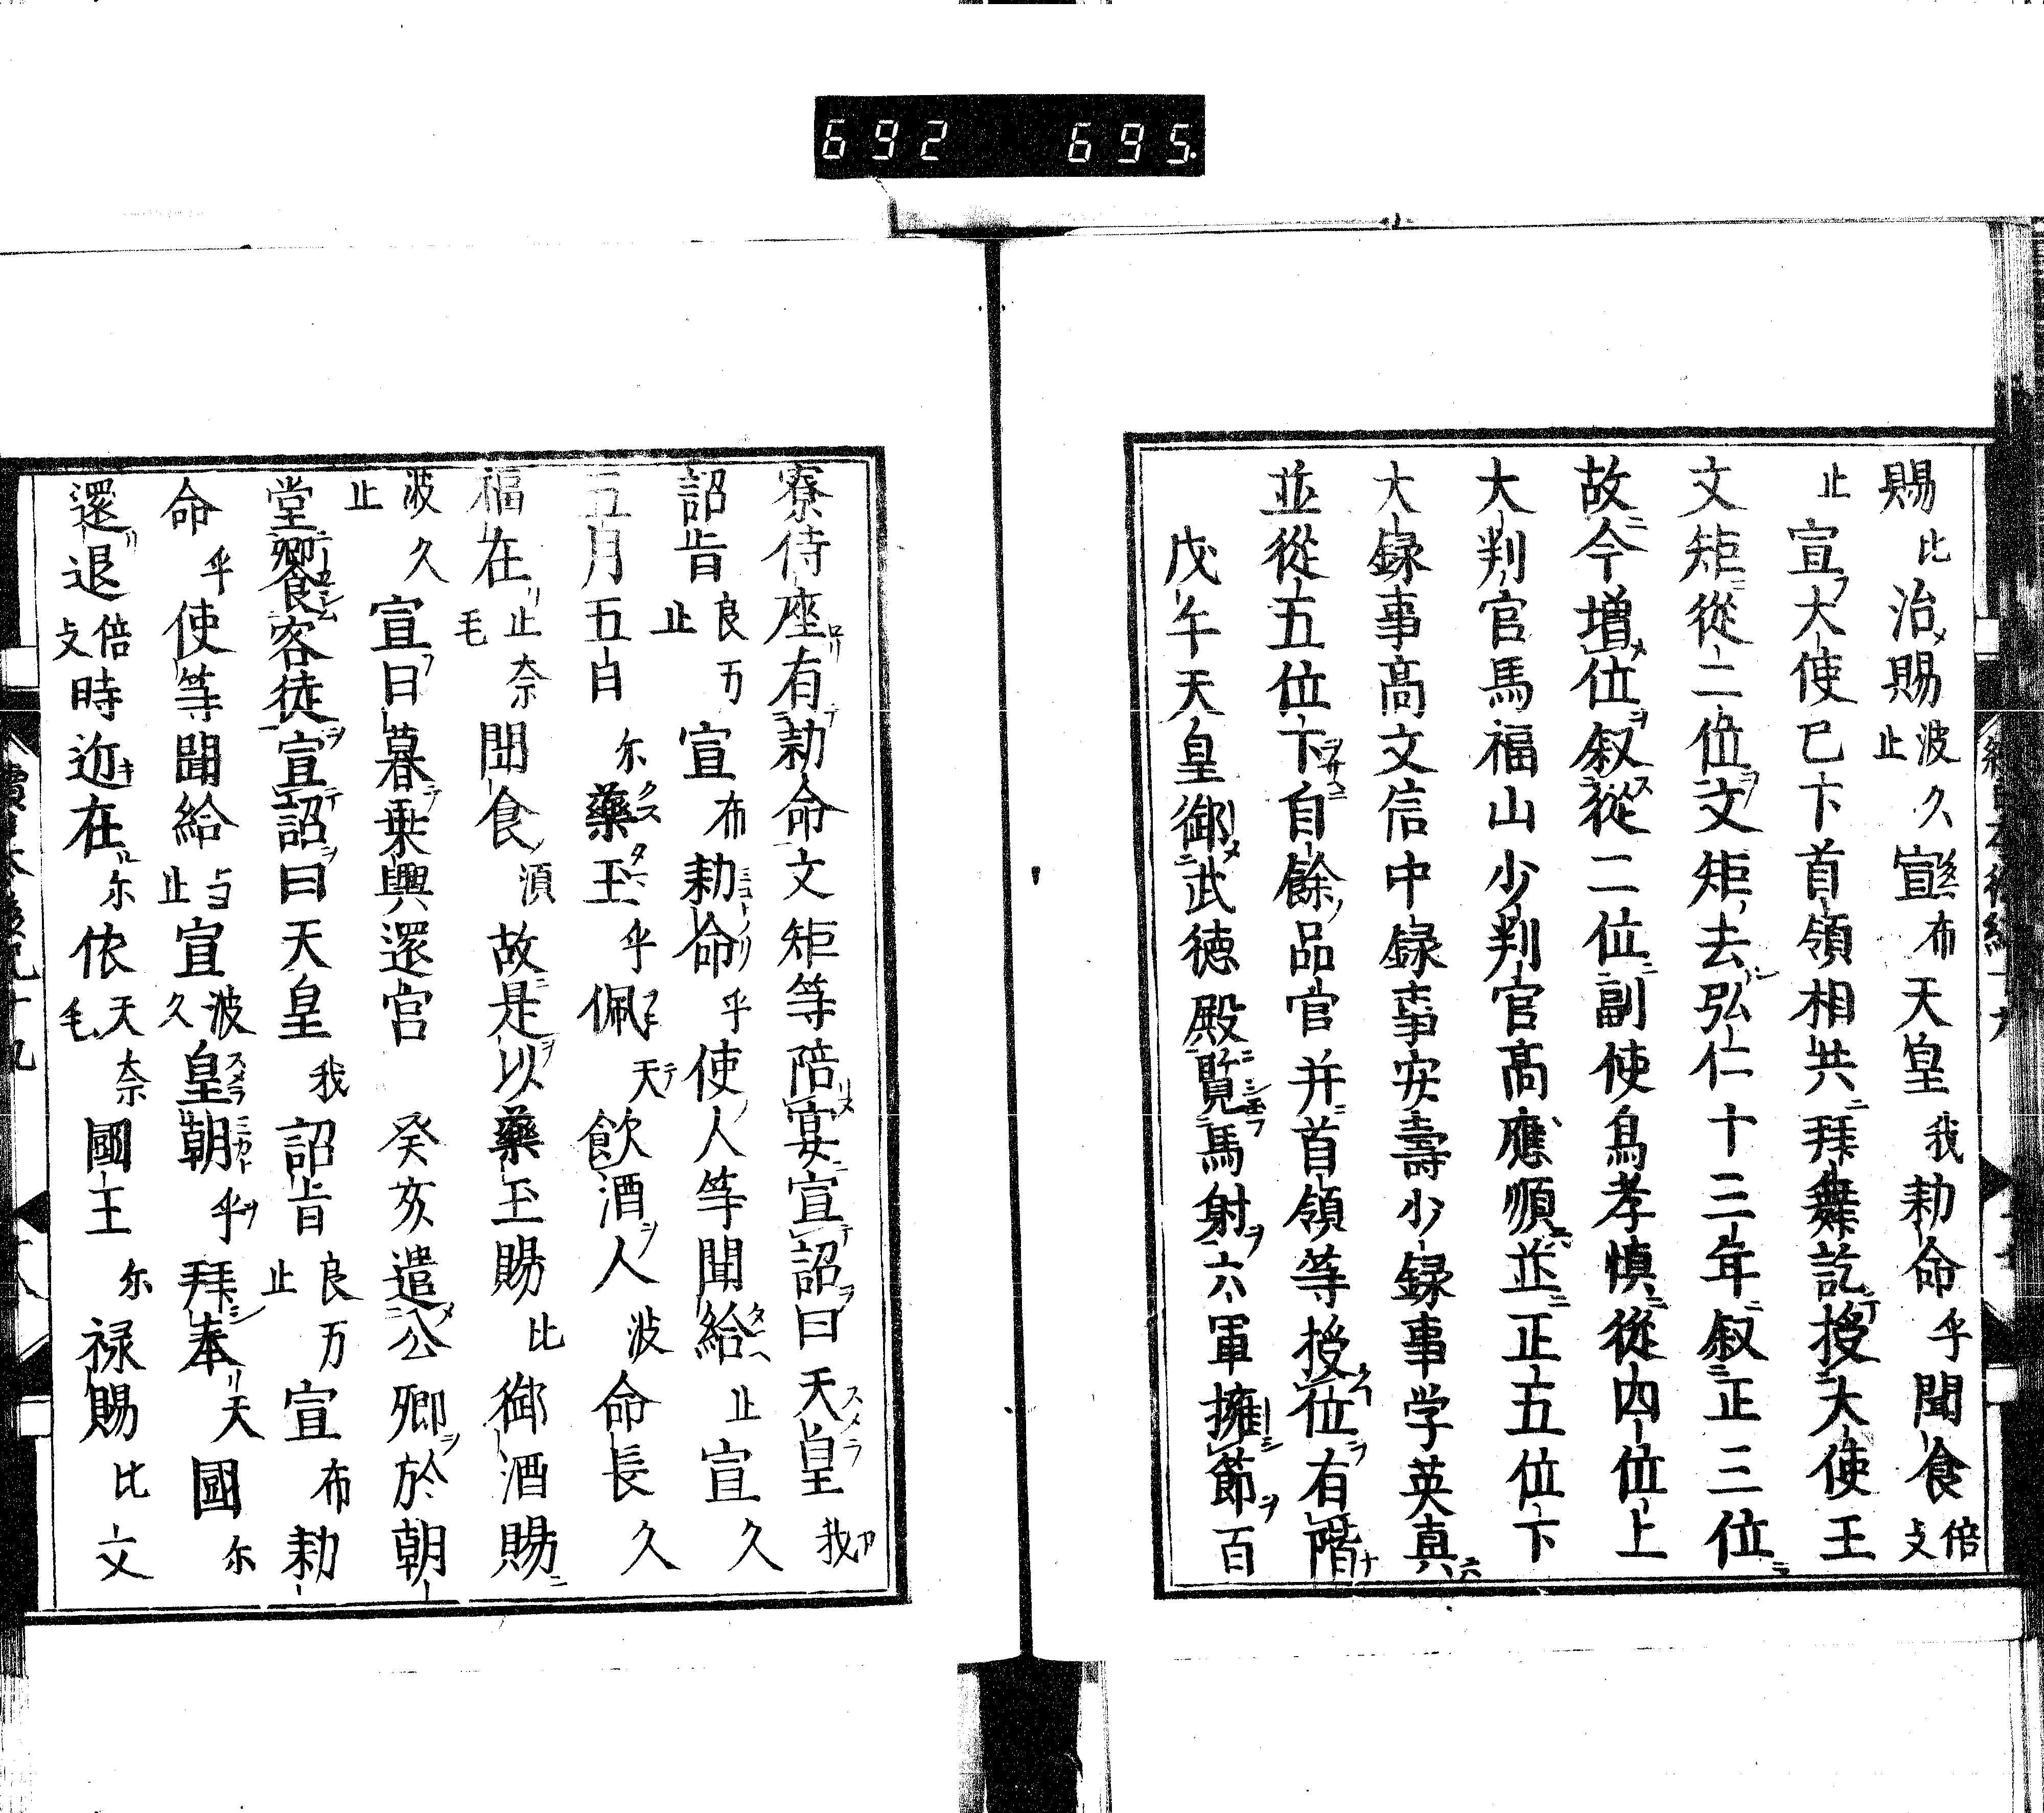 692 695.
賜比治賜波久止宣布天皇我勅命乎聞食倍支
止宣大使已下首領相共拜舞訖授大使王
文矩從二位文矩去弘仁十三年叙正三位
故今増位叙從二位副使烏孝愼從四位上
大判官馬福山少判官髙應順並正五位下
大録事髙文信中録事安壽少録事学英真
並從五位下自餘品官并首領等授位有階
戊午天皇御武徳殿覧馬射六軍擁節百
寮侍座有勅命文矩等陪宴宣詔曰天皇我
詔旨良万止宣布勅命乎使人等聞給止宣久
五月五日尓藥玉乎佩天飲酒人波命長久
福在止奈毛聞食須故是以藥玉賜比御酒賜
波久止宣日暮乗輿還宮　癸亥遣公卿於朝
堂饗客徒宣詔曰天皇我詔旨良万止宣布勅
命乎使等聞給与止宣久波皇朝乎拜奉天國尓
還退倍支時近在尓依天奈毛國王尓禄賜比文